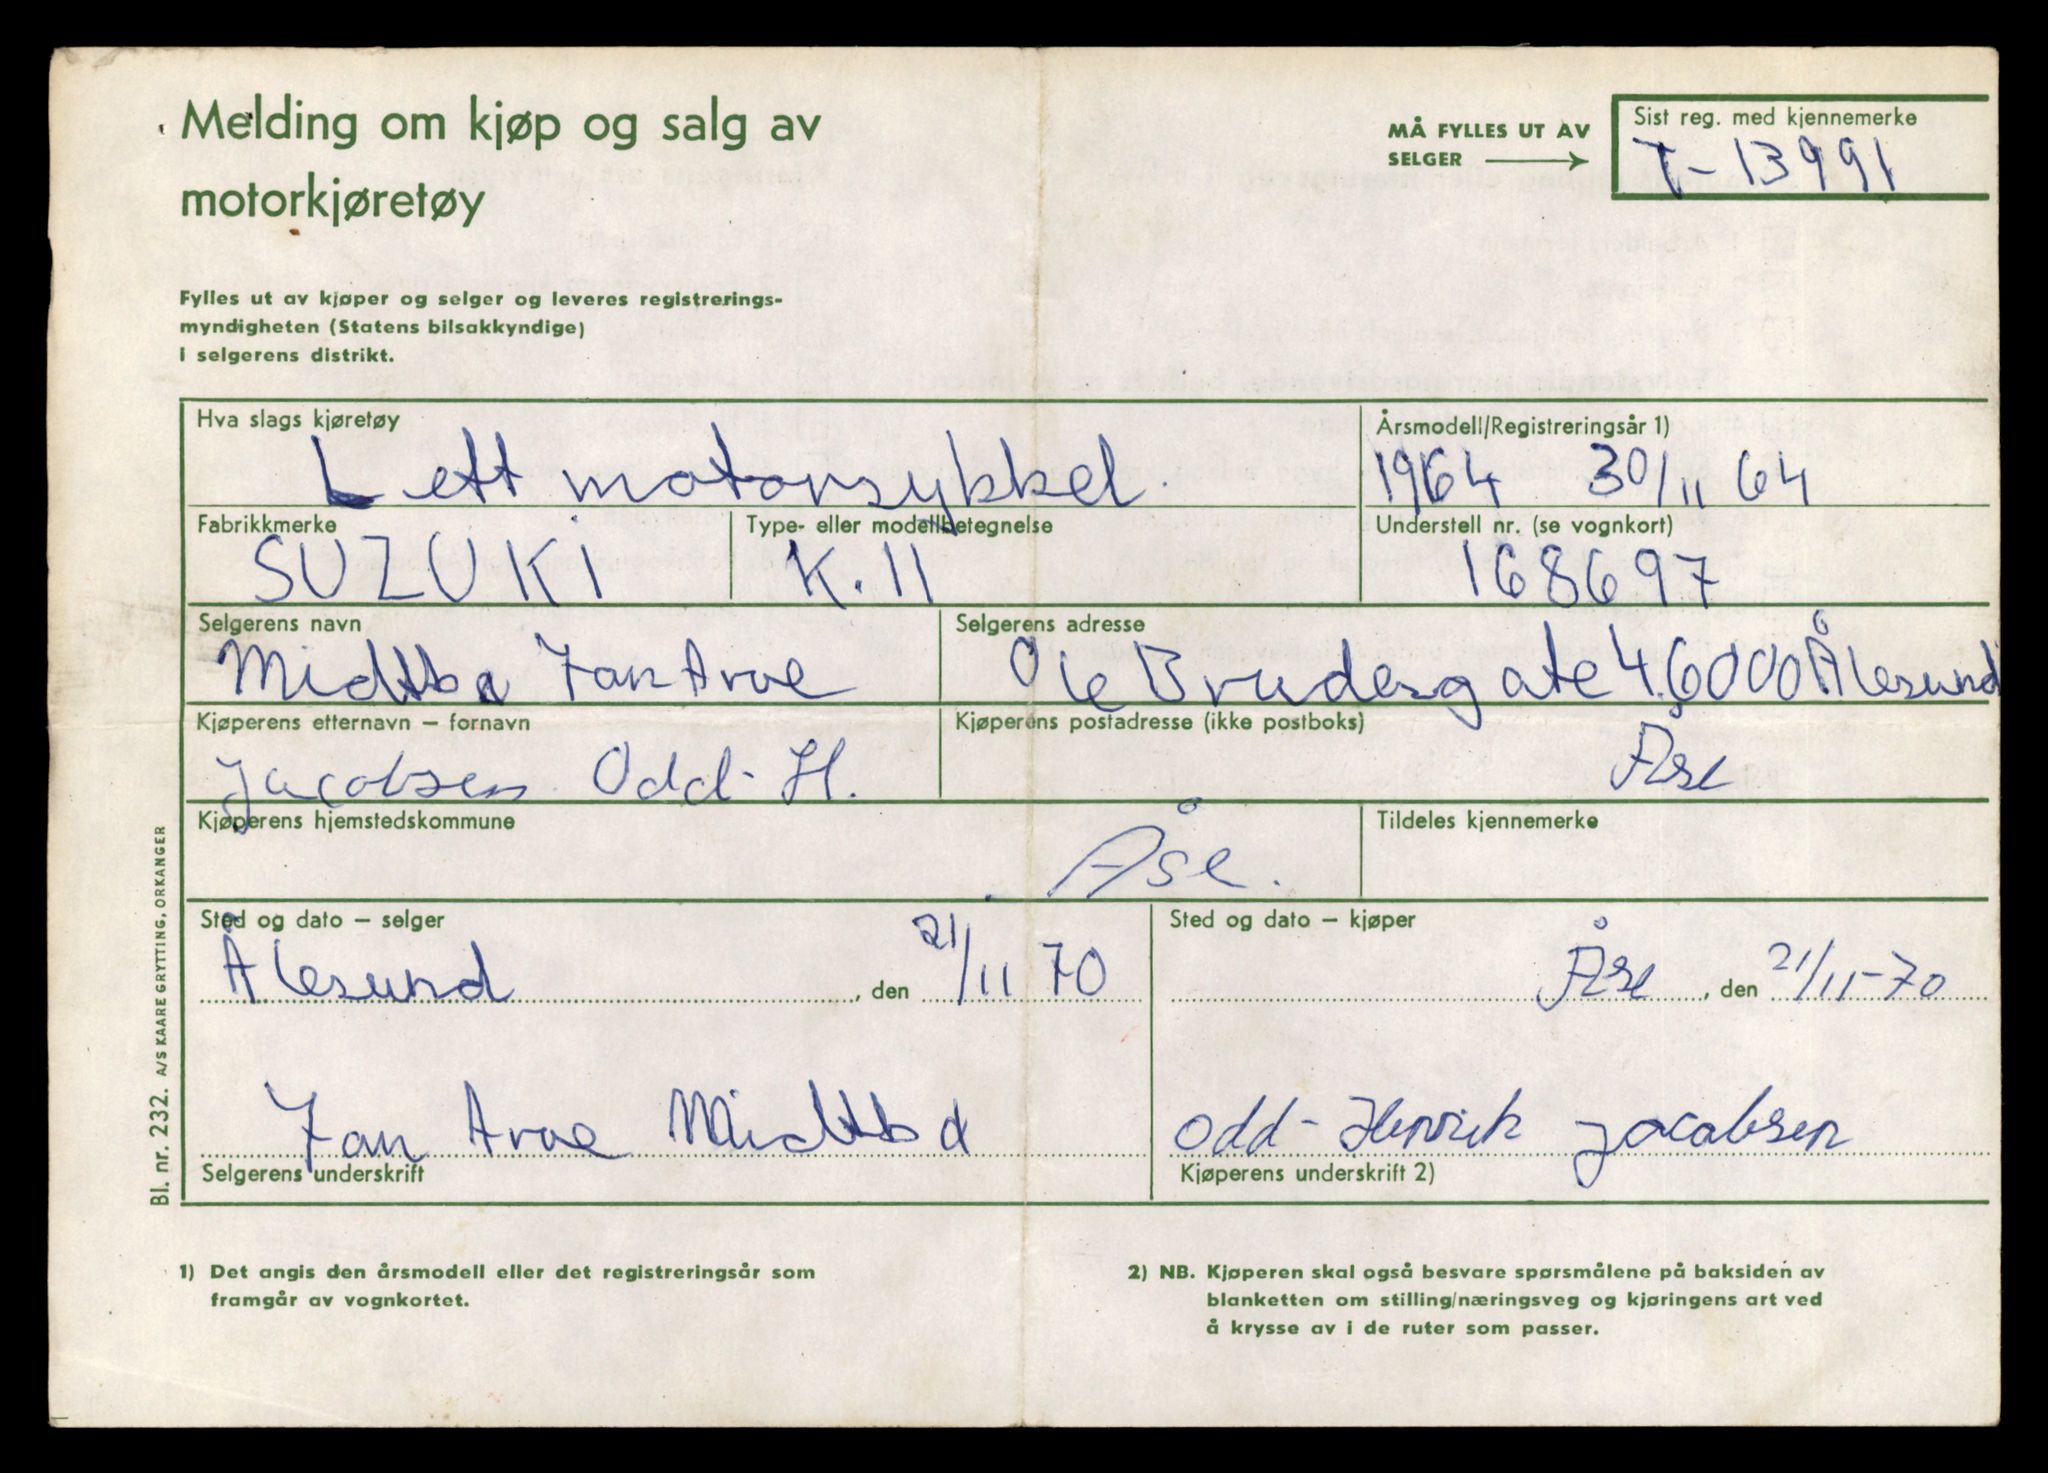 Melding om kjøp og salg av
motorkjøretøy
MÅ FYLLES UT AV
SELGER
Sist reg. med kjennemerke
T-13991
Fylles ut av kjøper og selger og leveres registrerings-
myndigheten (Statens bilsakkyndige)
i selgerens distrikt.
Hva slags kjøretøy
Lett motorsykkel.
Årsmodell/Registreringsår 1)
1964 30/11 64
Fabrikkmerke
SUZUKI
Type- eller modellbetegnelse
K.11
Understell nr. (se vognkort)
168697
Selgerens navn
Midtbø Jan Arve
Selgerens adresse
Ole Brudesgate 4. 6000 Ålesund
Kjøperens etternavn – fornavn
Jacobsen Odd-H.
Kjøperens postadresse (ikke postboks)
Åse
Kjøperens hjemstedskommune
Åse.
Tildeles kjennemerke
Sted og dato – selger
Ålesund, den 21/11 70
Sted og dato – kjøper
Åse, den 21/11-70
Jan Arve Midtbø
Selgerens underskrift
Odd-Henrik Jacobsen
Kjøperens underskrift 2)
Bl. nr. 232. A/S KAARE GRYTTING, ORKANGER
1) Det angis den årsmodell eller det registreringsår som
framgår av vognkortet.
2) NB. Kjøperen skal også besvare spørsmålene på baksiden av
blanketten om stilling/næringsveg og kjøringens art ved
å krysse av i de ruter som passer.